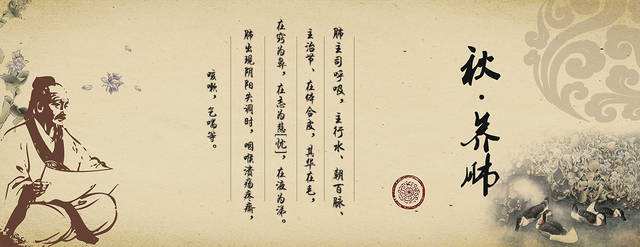 秋·养肺
肺主司呼吸,主行水、朝百脉、
主治节、在体合皮,其华在毛,
在窍为鼻,在志为悲[忧],在液为涕。
肺出现阴阳失调时,咽喉溃疡疼痛,
咳嗽,气喘等。